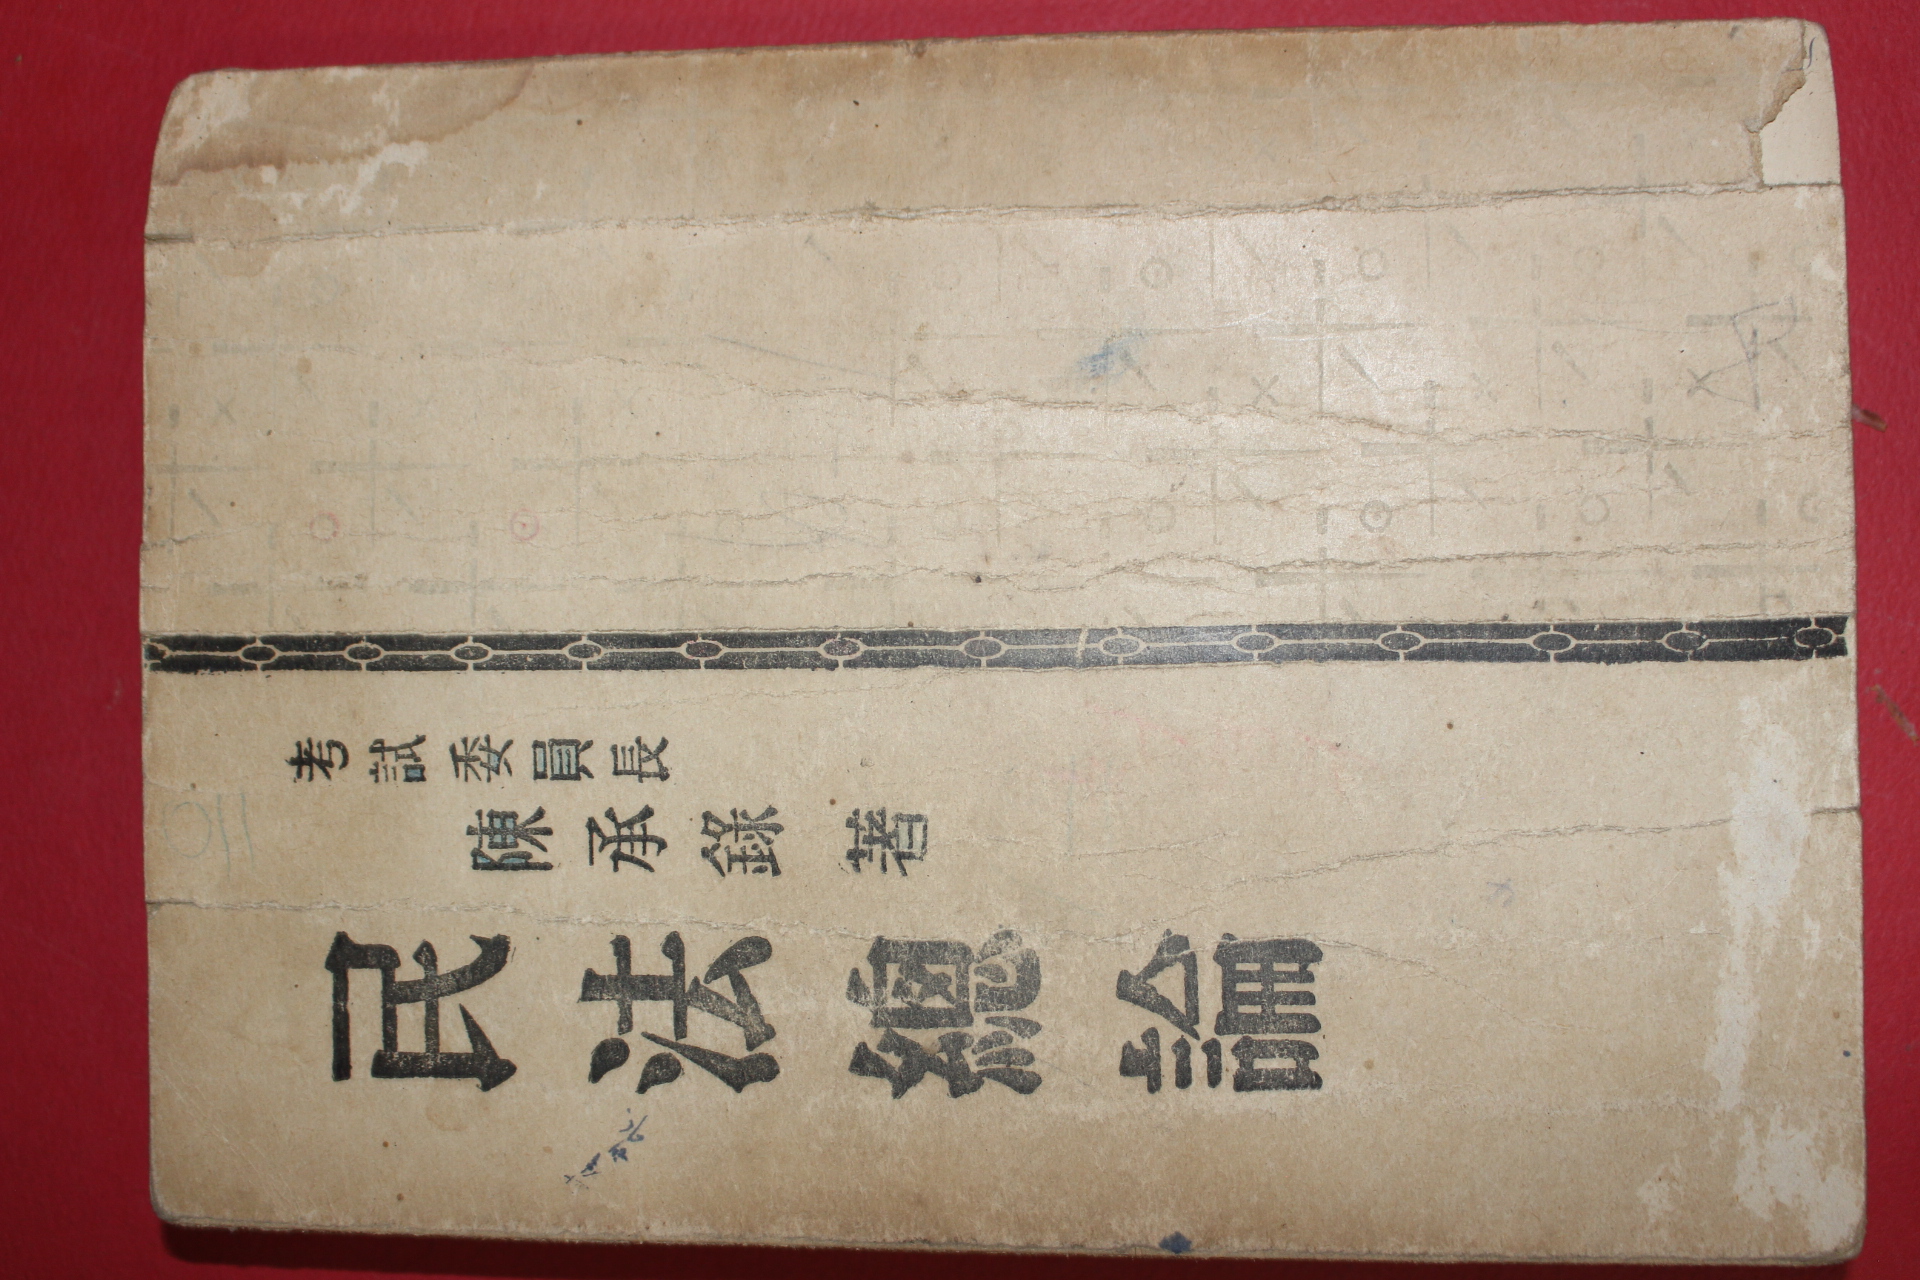 民法總論
考試委員長
陳承錄 著